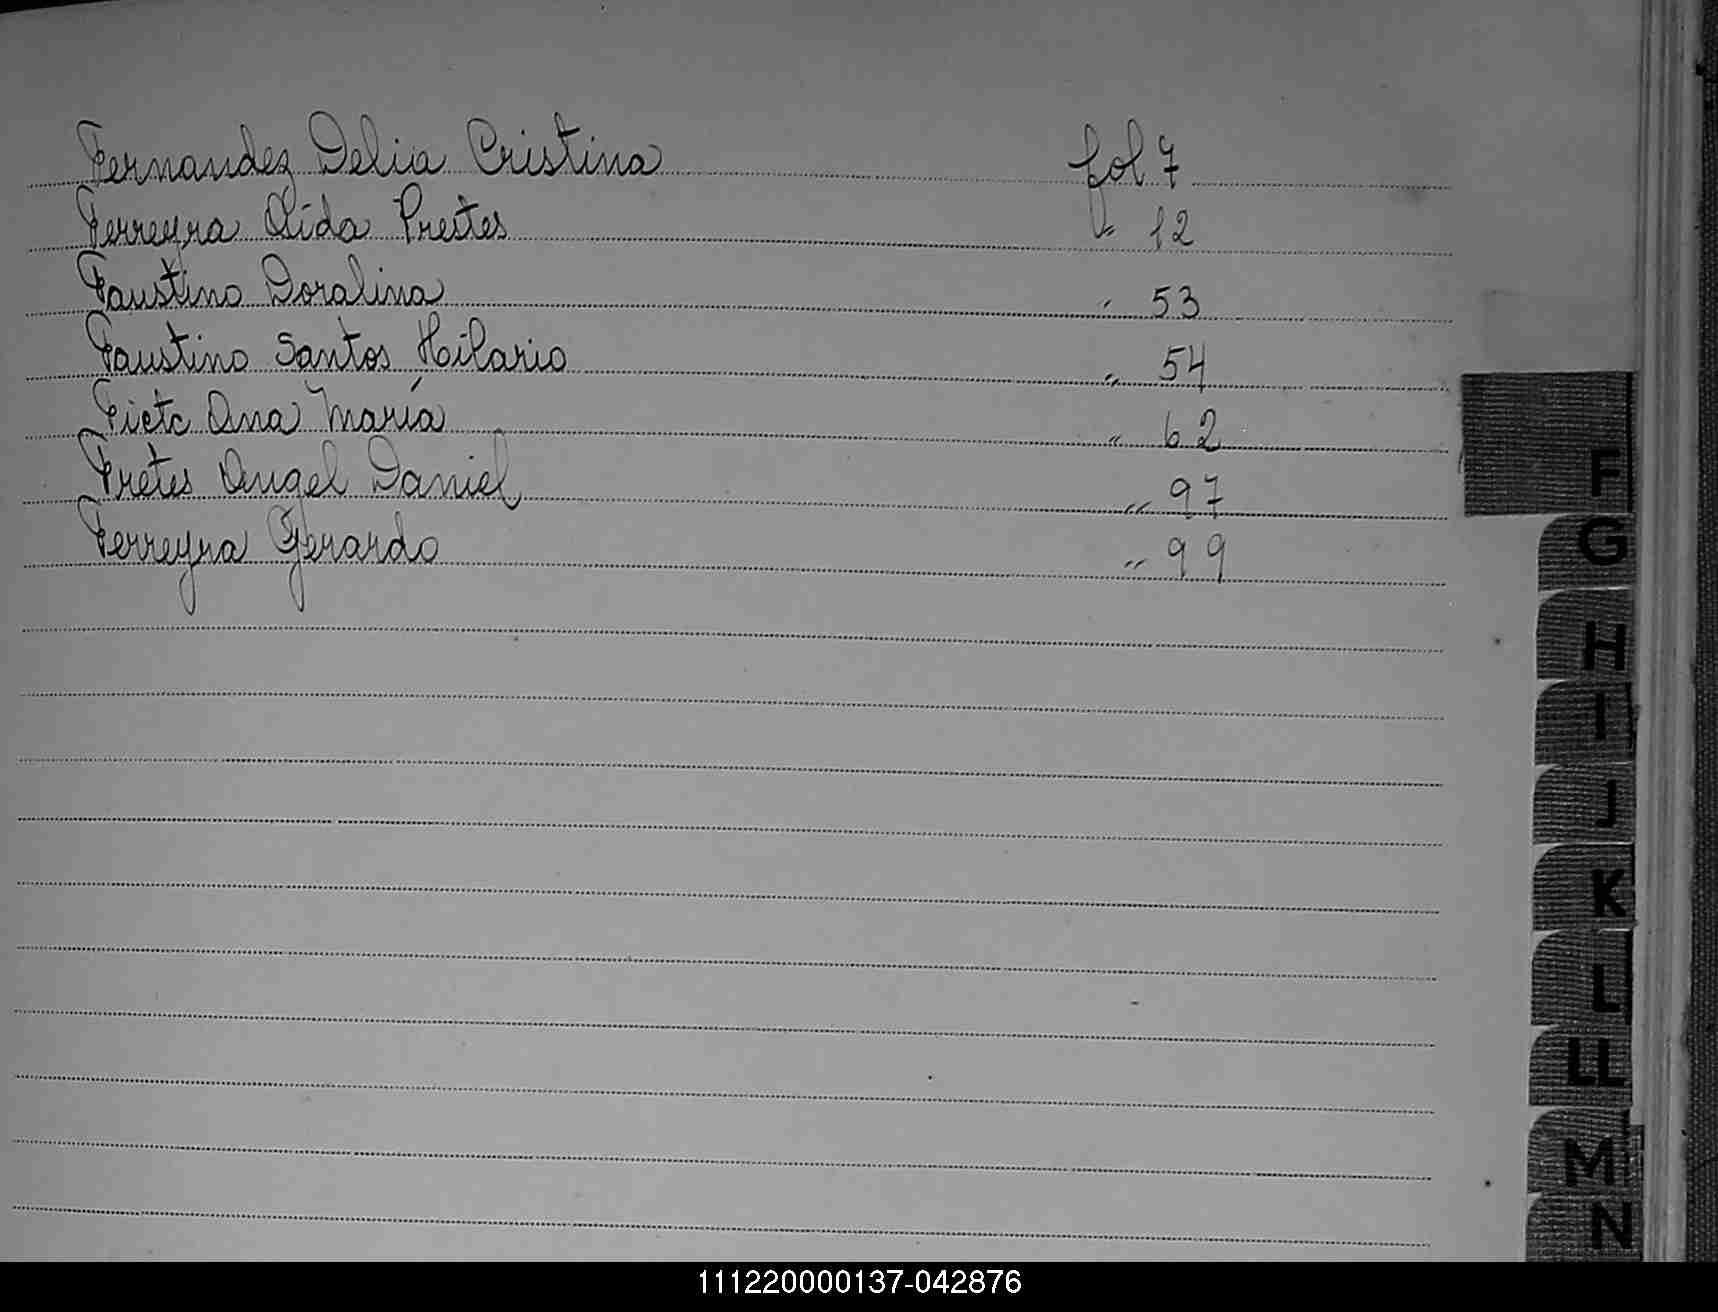 Fernandez Delia Cristina fol 7
Ferreyra Aida Prestes " 12
Faustino Doralina " 53
Faustino Santos Hilario " 54
Ana María " 62
Fretes Angel Daniel " 97
Ferreyra Gerardo " 99
F
G
H
I
J
K
L
LL
M
N
111220000137-042876